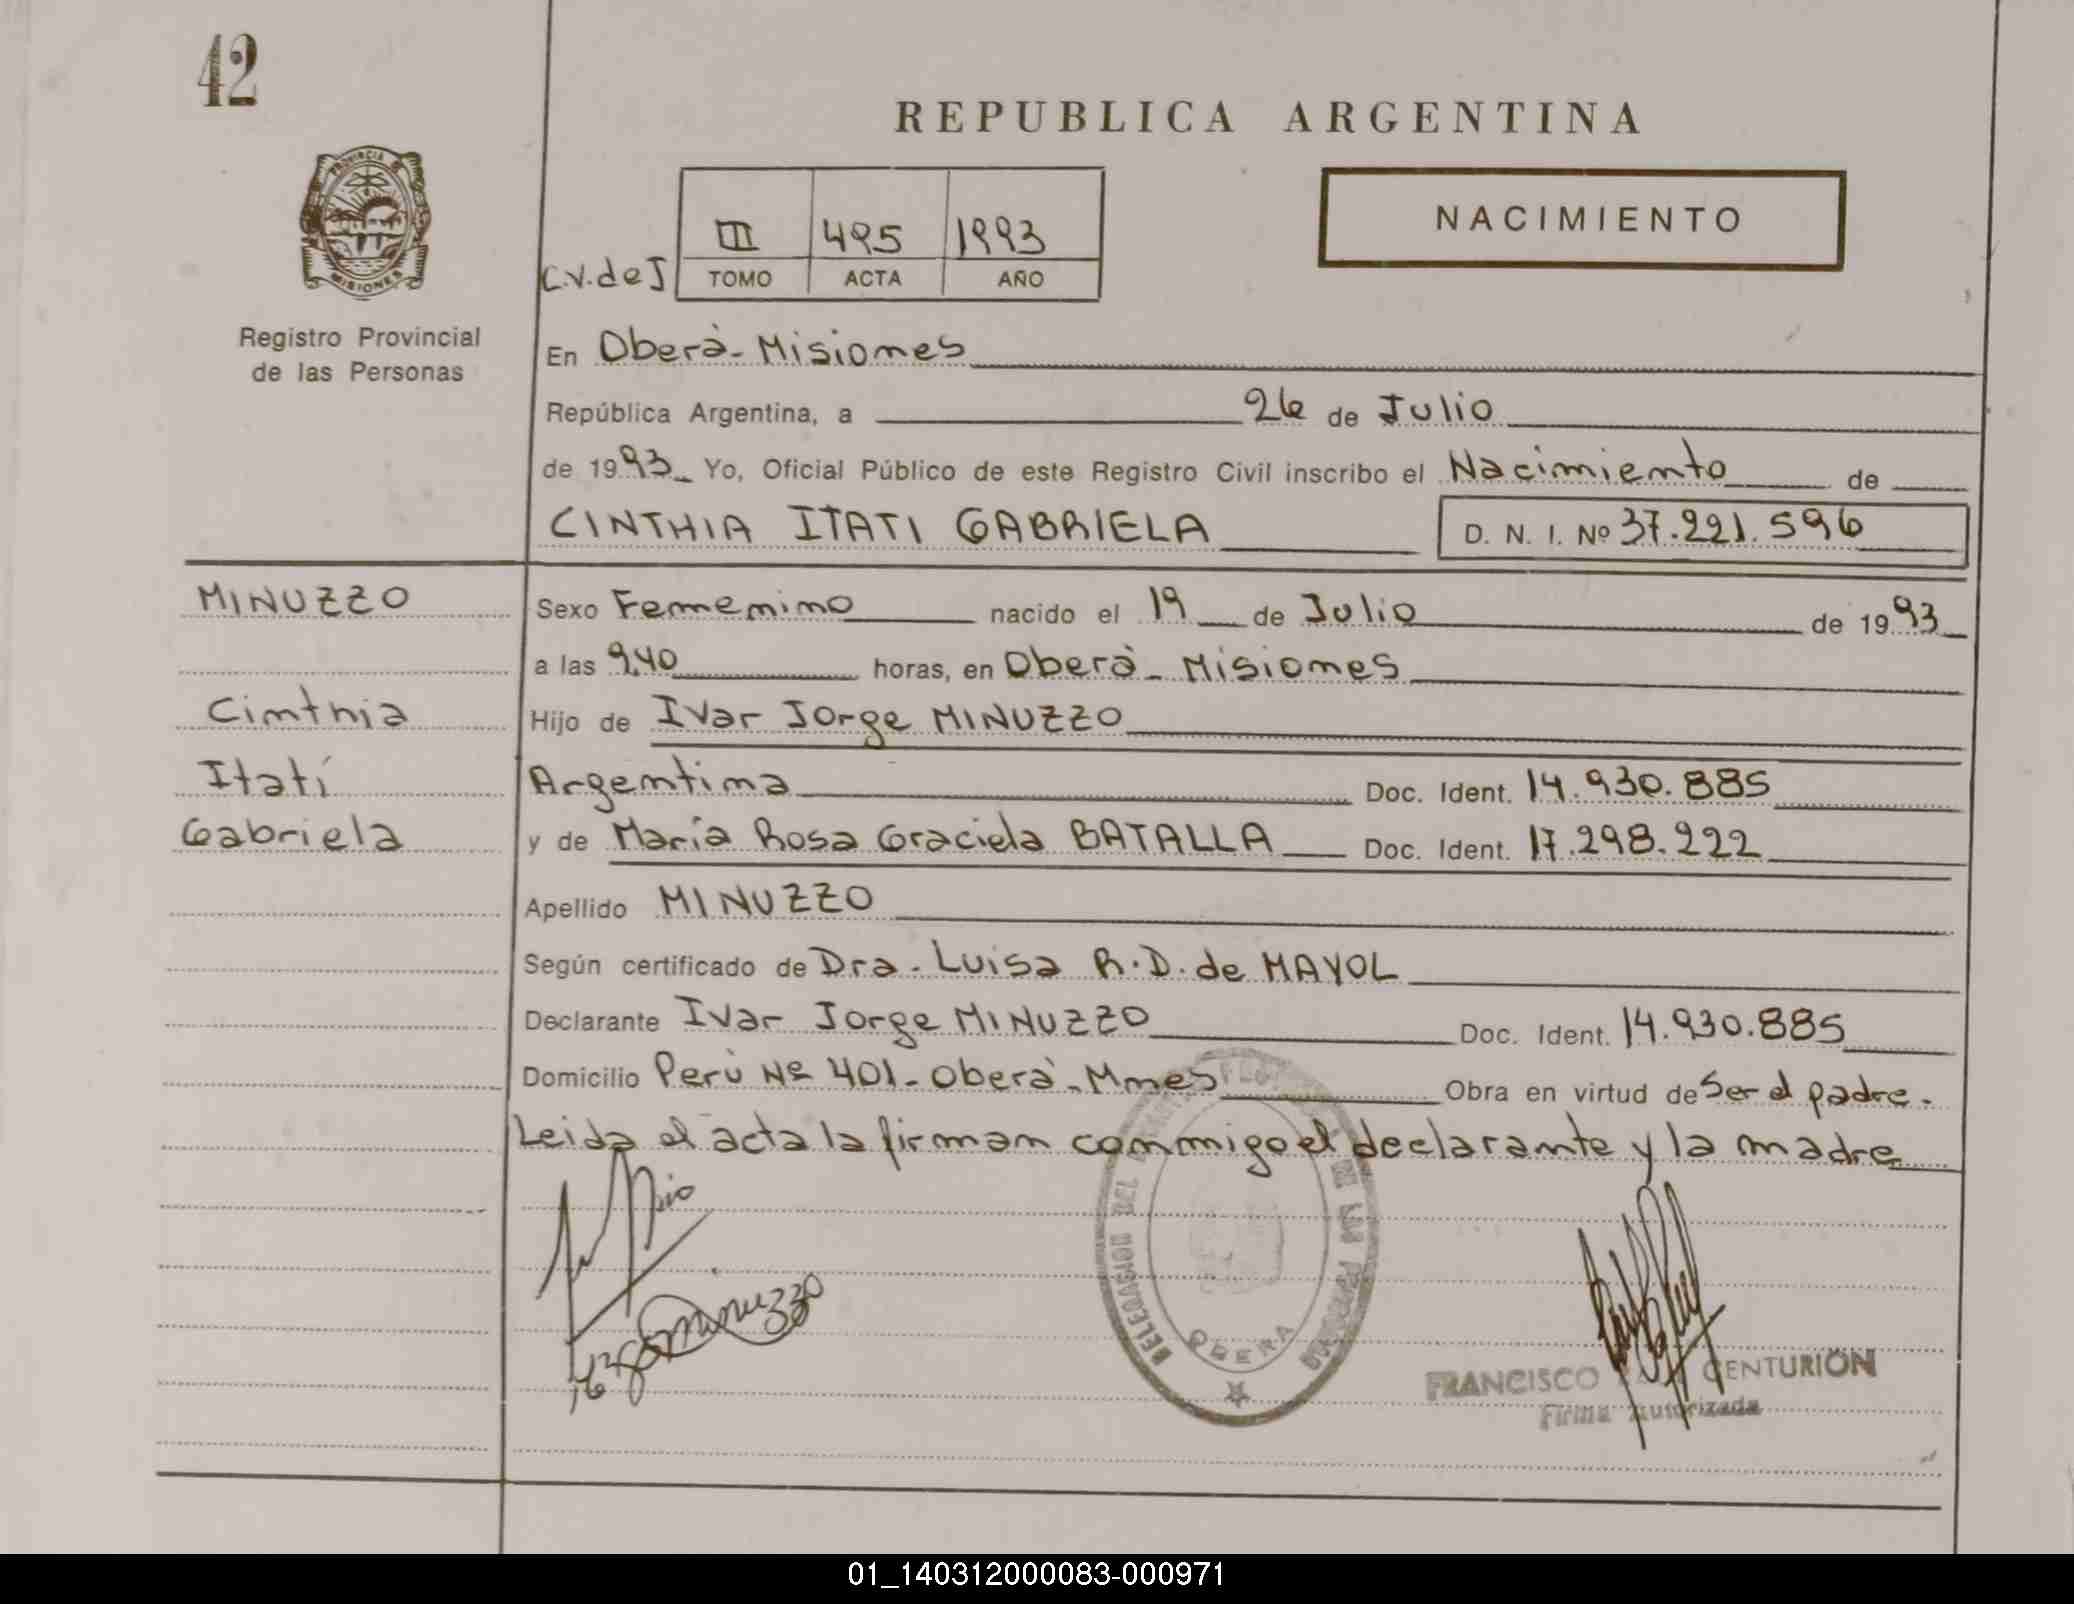 42
REPUBLICA ARGENTINA
PROVINCIA DE
MISIONES
Registro Provincial
de las Personas
C.V. de J
III 495 1993
TOMO ACTA AÑO
NACIMIENTO
En Oberà - Misiones
República Argentina, a 26 de Julio
de 1993 Yo, Oficial Público de este Registro Civil inscribo el Nacimiento de
CINTHIA ITATI GABRIELA D. N. I. Nº 37.221.596
MINUZZO
Cinthia
Itatí
Gabriela
Sexo Femenino nacido el 19 de Julio de 1993
a las 9,40 horas, en Oberà - Misiones
Hijo de Ivar Jorge MINUZZO
Argentina Doc. Ident. 14.930.885
y de María Rosa Graciela BATALLA Doc. Ident. 17.298.222
Apellido MINUZZO
Según certificado de Dra. Luisa R.D. de MAYOL
Declarante Ivar Jorge MINUZZO Doc. Ident. 14.930.885
Domicilio Perù Nº 401 - Oberà - Mnes Obra en virtud de Ser el padre.
Leida el acta la firman conmigo el declarante y la madre
Minuzzo
DELEGACION DEL
DE LAS PERSONAS
OBERA
FRANCISCO CENTURION
Firma Autorizada
01_140312000083-000971